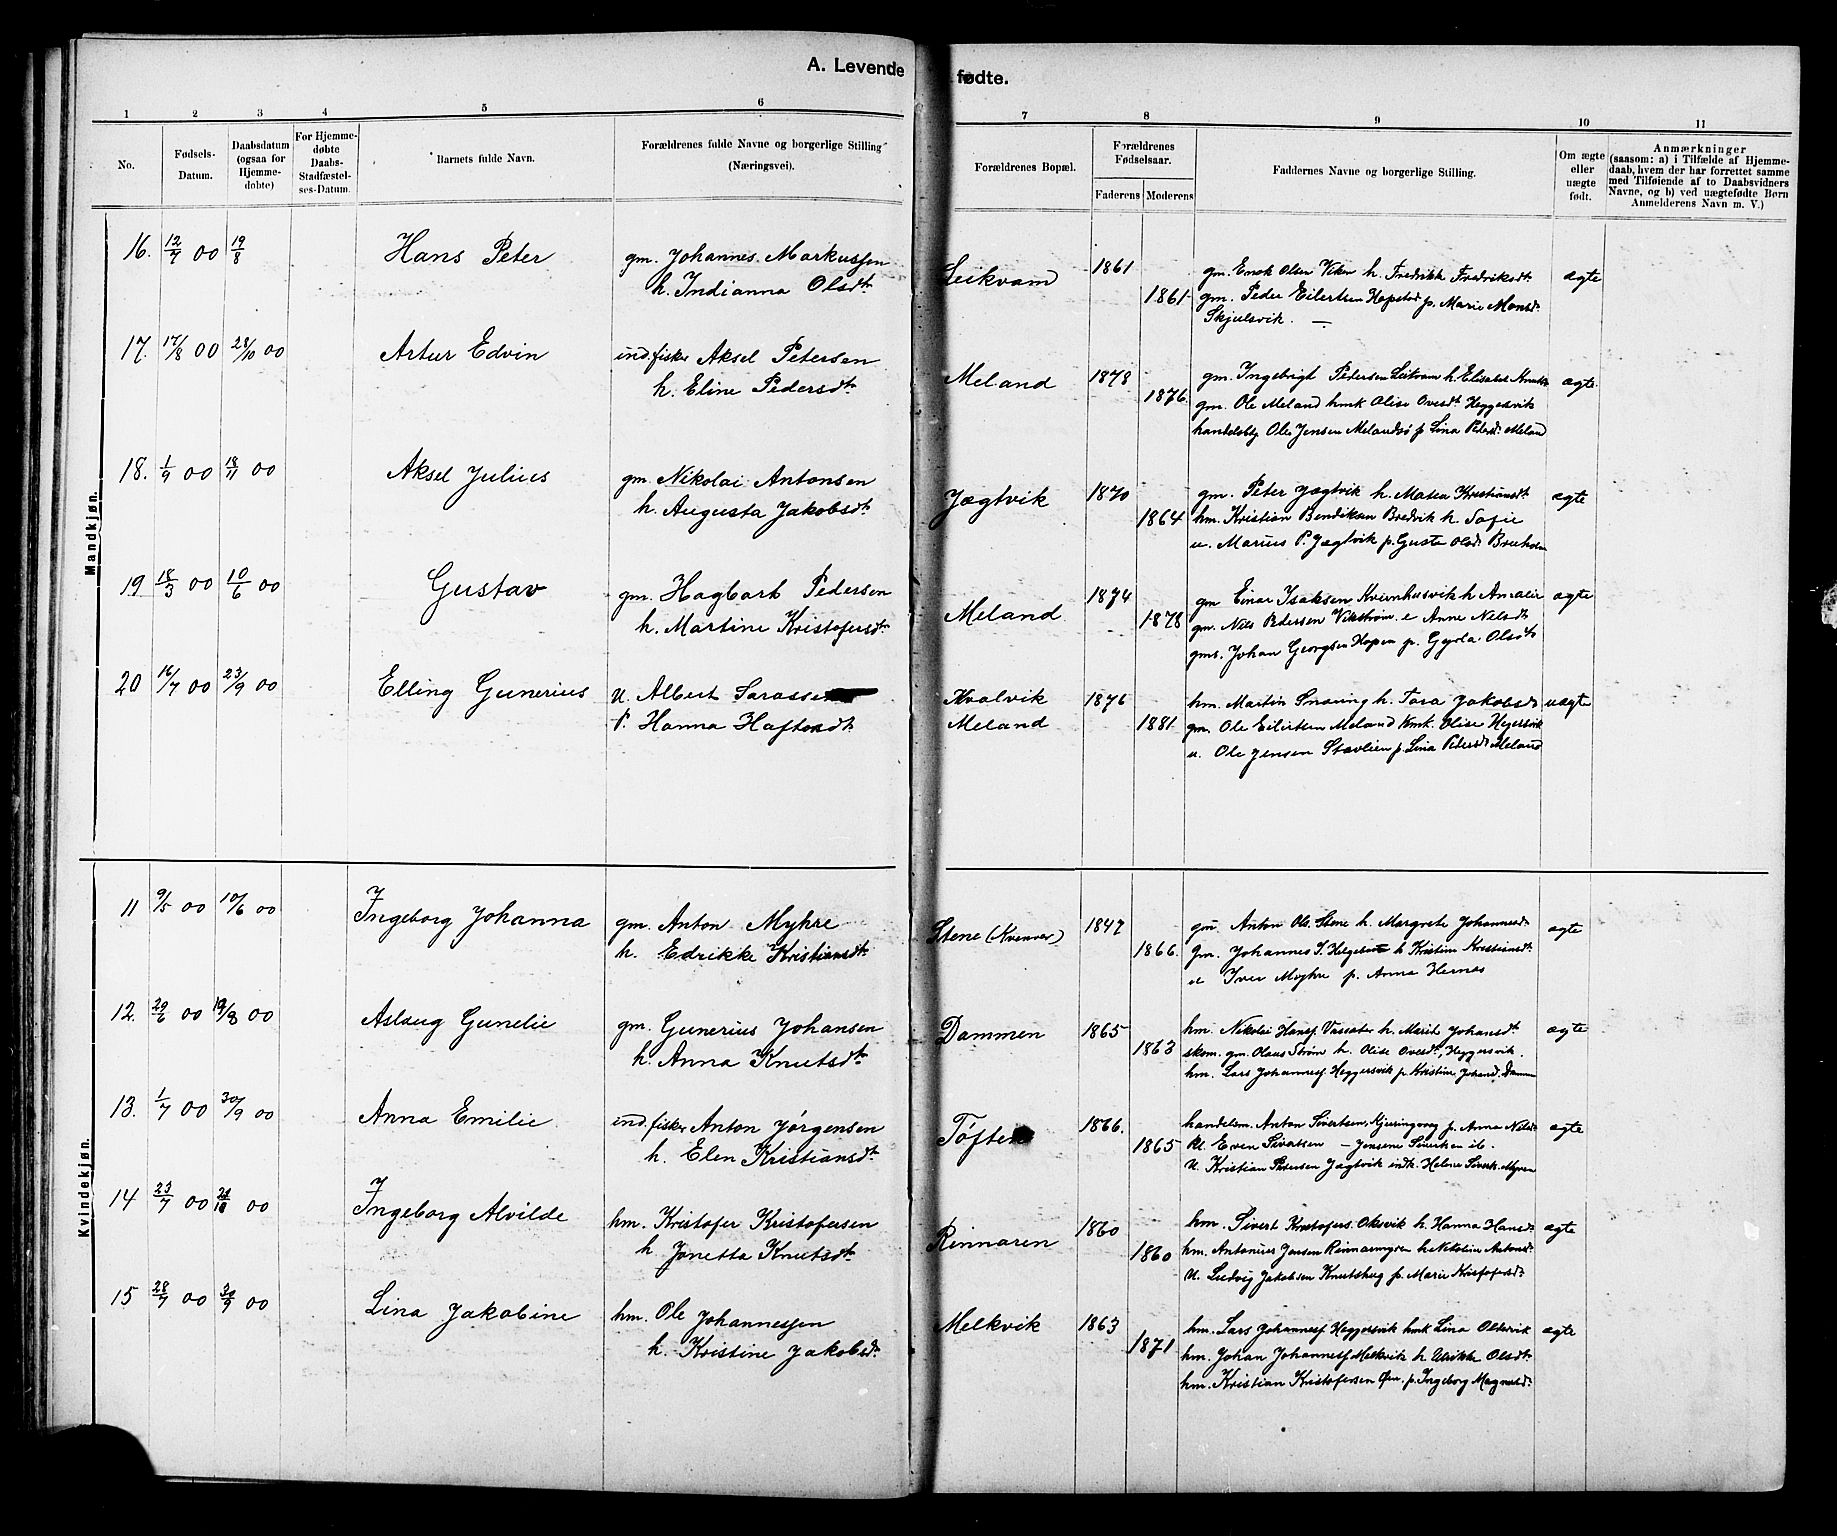 A. Levende fødte.
1 2 3 4 5 6 7 8 9 10 11
No.
Fødsels-Datum.
Daabsdatum (ogsaa for Hjemme-døbte)
For Hjemme-døbte Daabs-Stadfæstel-ses-Datum.
Barnets fulde Navn.
Forældrenes fulde Navne og borgerlige Stilling (Næringsvei).
Forældrenes Bopæl.
Forældrenes Fødselsaar.
Faderens Moderens
Faddernes Navne og borgerlige Stilling.
Om ægte eller uægte født.
Anmærkninger
(saasom: a) i Tilfælde af Hjemme-
daab, hvem der har forrettet samme
med Tilføiende af to Daabsvidners
Navne, og b) ved uægtefødte Børn
Anmelderens Navn m. V.)
Mandkjøn.
16. 12/7 00 19/8 Hans Peter gm. Johannes Markussen Leikvam 1861 gm. Enok Olsen Viken h. Fredrikk Fredriksdt ægte
h. Indianna Olsdt 1861 gm. Peder Eilertsen Hopstad p. Marie Monsd.
Skjulsvik. —
17. 17/8 00 28/10 00 Artur Edvin ind. fisker Aksel Petersen Meland 1878 gm. Ingebrigt Pedersen Leikvam h. Elisabet ægte
h. Eline Pedersdt 1876. gm. Ole Meland kmk Olise Ovesdt Heggesvik
handelsbtj Ole Jensen Melandsø p Lina Pedersd. Meland
18. 1/9 00 18/11 00 Aksel Julius gm. Nikolai Antonsen Jægtvik 1870 gm. Peter Jægtvik h. Matea Kristiansdt ægte
h. Augusta Jakobsdt 1864 hm. Kristian Bendiksen Bredvik h. Sofie
u. Marius P. Jægtvik p. Guste Olsd.
19 18/3 00 10/6 00 Gustav gm. Hagbart Pedersen Meland 1874 gm Einar Isaksen Kvernhusvik h ægte
h. Martine Kristofersdt 1878 gm. Nils Pedersen Vikstrøm e Anne Nelsdt
gms. Johan Georgsen Hopen p. Gyda Olsdt
20 16/7 00 23/9 00 Elling Gunerius u. Albert Kvalvik 1876 hm. Martin Snaring h. Tora Jakobsd uægte
P. Hanna Haftorsdt. Meland 1881 gm. Ole Eilertsen Meland kmk. Olise Hegersvik
u. Ole Jensen Stavlien p. Lina Pedersd Meland
Kvindekjøn.
11 9/5 00 10/6 00 Ingeborg Johanna gm. Anton Myhre Stene (Kvenver) 1847 gm. Anton Ols. Stene h. Margrete Johannesd. ægte
h. Edrikke Kristiansdt 1866. gm. Johannes I. h Kristine Kristiansdt
e Iver Myhre p. Anna Hernes
12. 29/6 00 19/8 00 Aslaug Gunelie gm. Gunerius Johansen Dammen 1865 hm. Nikolai Hansf h. Marit Johansdt ægte
h. Anna Knutsdt 1863 skom. gm. Olaus Strøm h. Olise Ovesdt, Heggersvik.
hm. Lars Johannesf Heggersvik p. Kristine Johand. Dammen
13. 1/7 00 30/9 00 Anna Emilie ind. fisker Anton Jørgensen Tøften 1866. handelsm. Anton Sivertsen, p. Anna ægte
h. Elen Kristiansdt 1865 kl. Even Sivertsen — Jensene Sivertsen ib.
u. Kristian Petersen Jægtvik indk. Helene Myren
14 23/7 00 21/10 00 Ingeborg Alvilde hm. Kristofer Kristofersen Rinnaren 1860 hm. Sivert Kristofers. Oksvik h. Hanna Hansd. ægte
h. Jonetta Knutsdt. 1860 hm. Antonius Jensen h. Nikoline Antond.
u. Ludvig Jakobsen Knutshaug p. Marie Kristofersdt.
15 28/7 00 30/9 00 Lina Jakobine hm. Ole Johannessen Melkvik 1863 hm. Lars Johannesf Heggersvik kmk Lina ægte
h. Kristine Jakobsd. 1871 hm. Johan Johannesf Melkvik h Ulrikke Olsdt.
hm. Kristian Kristofersen p. Ingeborg Magnusd.